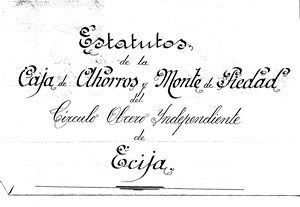 Estatutos
de la
Caja de Ahorros y Monte de Piedad
del
Círculo Obrero Independiente
de
Ecija.